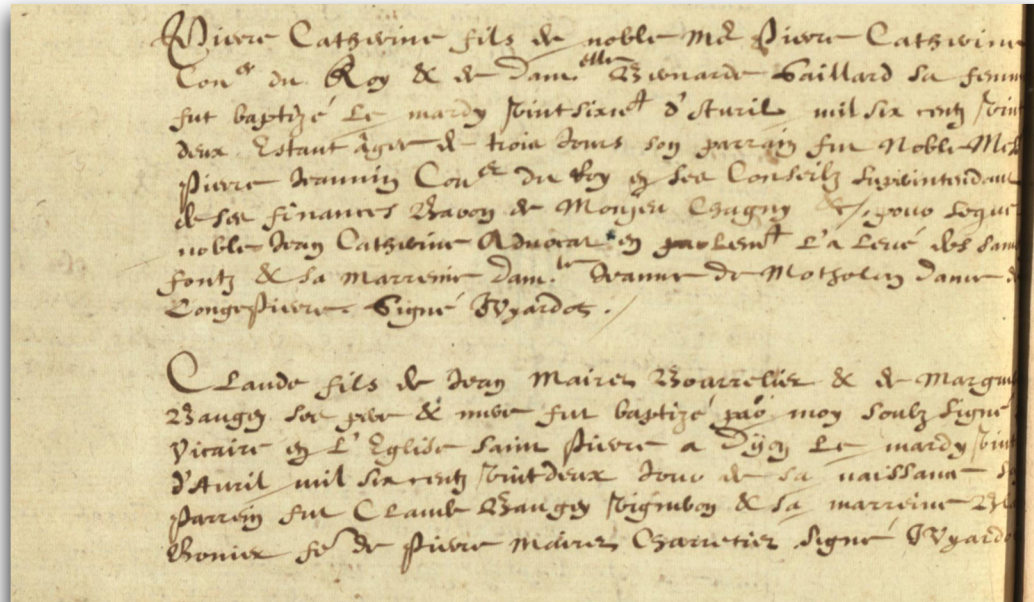 Pierre Catherine fils de noble Me Pierre Catherine
Coner du Roy & de dam.elle Bernarde Gaillard sa femm
fut baptizé le mardy vintsixiet d'Auril mil six centz vint
deux Estant âgee de trois Jours son parrain fut Noble Me
Pierre Jeannin Coner du Roy en ses Conseilz Superintendant
de ses finances Baron de Monjeu Chagny &c, pour leque
noble Jean Catherine Aduocat en parlemt L'a Leué des sain
fontz & sa Marreine dam.le Jeanne de dame d
Longepierre. Signé Vyardot.
Claude fils de Jean Maires Bourrelier & de Margue
Baugey ses pere & mere fut baptizé par moy soubz signé
Vicaire en L'Eglise saint Pierre a Dijon Le mardy vint
d'Auril mil six centz vint deux Jour de sa naissance S
Parrein fut Claude Baugey vigneron & sa marreine
Bonier fe de Pierre Maires Charretier signé Vyardo